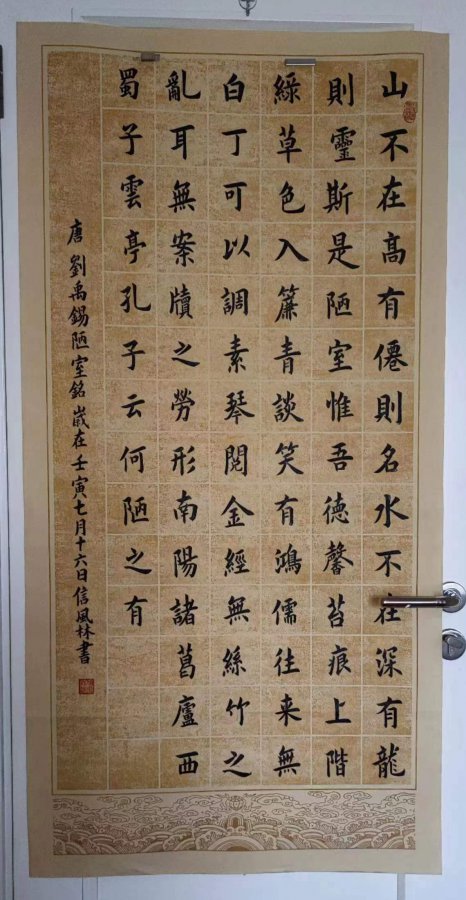 山不在高有僊則名水不在深有龍
則靈斯是陋室惟吾德馨苔痕上階
綠草色入簾青談笑有鴻儒往来無
白丁可以調素琴閱金經無絲竹之
亂耳無案牘之勞形南陽諸葛廬西
蜀子雲亭孔子云何陋之有
唐劉禹錫陋室銘歲在壬寅七月十六日信風林書